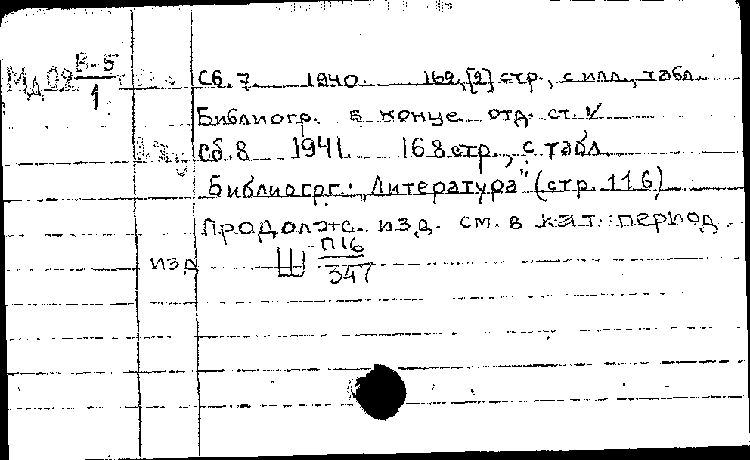 Мд 09 В-5/1 Сб. 7. 1940. 169, [2] стр., с илл., табл.
Библиогр. в конце отд. ст.
Сб. 8 1941. 168 стр., с табл
Библиогр.: "Литература" (стр. 116)
Продолж. изд. см. в кат. период.
изд Ш П16/347